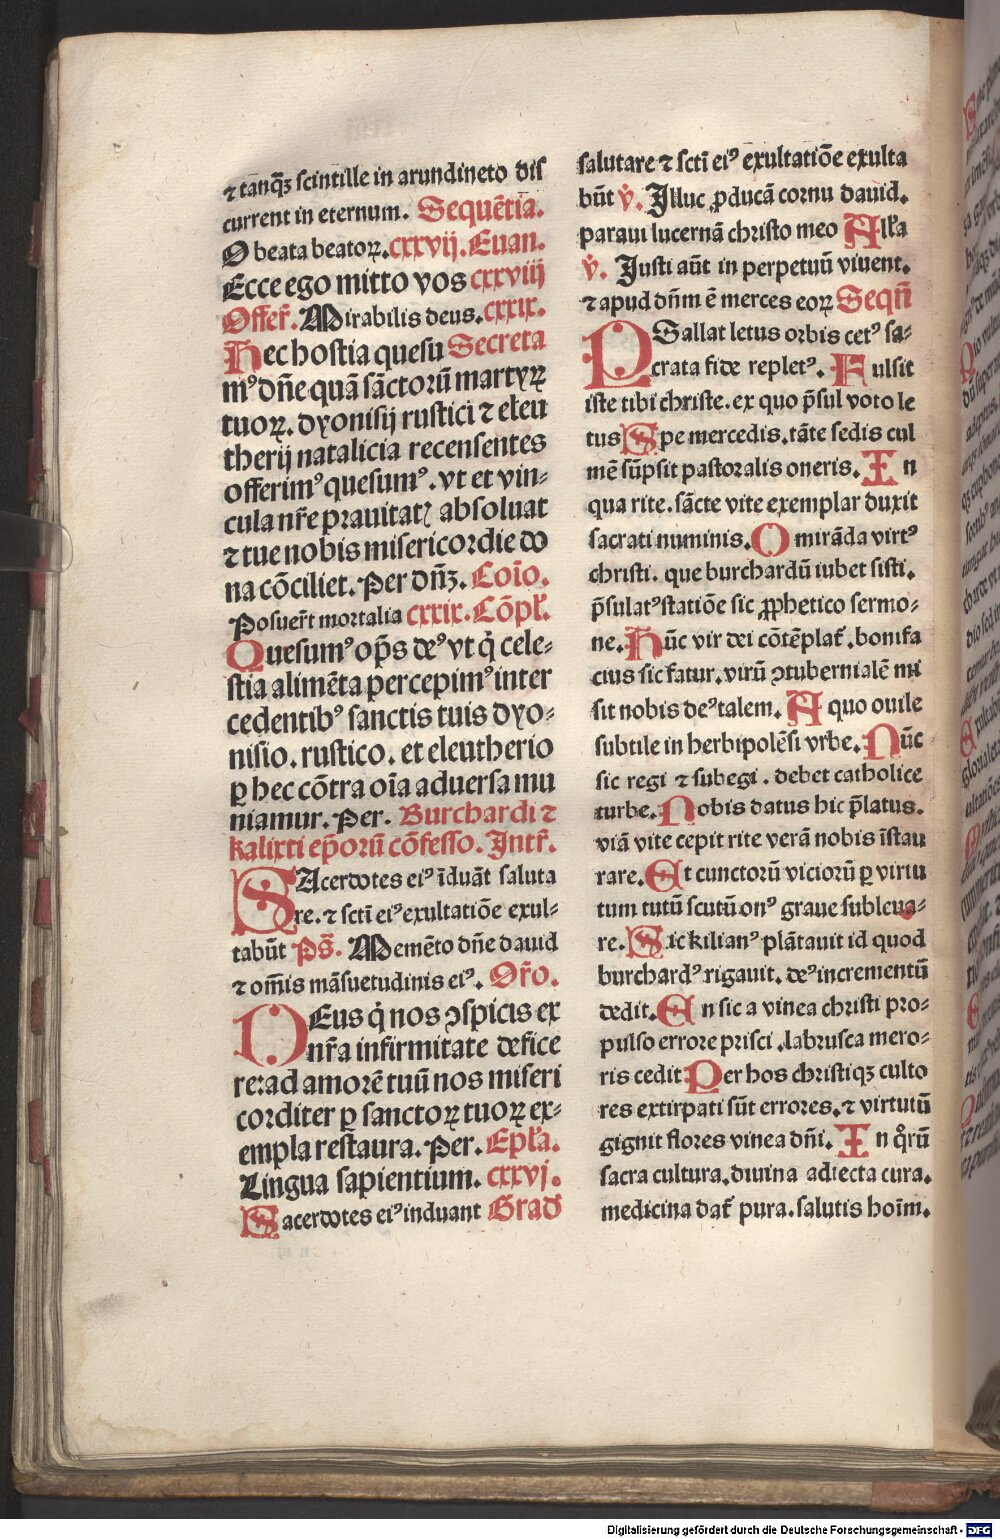 ⁊ tanq̃ꝫ scintille in arundineto dis
current in eternum. Sequẽtia.
O beata beatoꝝ. cxxvij. Euan.
Ecce ego mitto vos cxxviij
Offer̃. Mirabilis deus. cxxix.
Hec hostia quesu Secreta
mꝰ dñe quã sãctorũ martyrꝝ
tuoꝝ. dyonisij rustici ⁊ eleu
therij natalicia recensentes
offerimꝰ quesumꝰ. vt et vin⸗
cula nr̃e prauitatꝭ absoluat
⁊ tue nobis misericordie do
na cõciliet. Per dñꝫ. Coĩo.
Posuer̃t mortalia cxxix. Cõpl̃.
Quesumꝰ op̃s deꝰ vt q̃ cele⸗
stia alimẽta percepimꝰ inter
cedentibꝰ sanctis tuis dyo⸗
nisio. rustico. et eleutherio
ꝑ hec cõtra oĩa aduersa mu
niamur. Per. Burchardi ⁊
kalixti ep̃orũ cõfesso. Intr̃.
SAcerdotes eiꝰ ĩduãt saluta
re. ⁊ sctĩ eiꝰ exultatiõe exul⸗
tabũt Ps̃. Memẽto dñe dauid
⁊ om̃is mãsuetudinis eiꝰ. Or̃o.
DEus q̃ nos ꝯspicis ex
nr̃a infirmitate defice
re: ad amorẽ tuũ nos miseri
corditer ꝑ sanctoꝝ tuoꝝ ex⸗
empla restaura. Per. Epl̃a.
Lingua sapientium. cxxvj.
Sacerdotes eiꝰ induant Grad
salutare ⁊ sctĩ eiꝰ exultatiõe exulta
bũt v̓. Illuc ꝓducã cornu dauid.
paraui lucernã christo meo All̃a
v̓. Iusti aũt in perpetuũ viuent.
⁊ apud dñm ẽ merces eoꝝ Seqñ
PSallat letus orbis cetꝰ sa⸗
crata fide repletꝰ. Fulsit
iste tibi christe. ex quo p̃sul voto le
tus Spe mercedis. tãte sedis cul
mẽ sũpsit pastoralis oneris. In
qua rite. sãcte vite exemplar duxit
sacrati numinis. O mirãda virtꝰ
christi. que burchardũ iubet sisti.
p̃sulatꝰ statiõe sic ꝓphetico sermo⸗
ne. Hũc vir dei cõtẽplat̃. bonifa
cius sic fatur. virũ ꝯtubernialẽ mi
sit nobis deꝰ talem. A quo ouile
subtile in herbipolẽsi vrbe. Nũc
sic regi ⁊ subegi. debet catholice
turbe. Nobis datus hic p̃latus.
viã vite cepit rite verã nobis ĩstau
rare. Et cunctorũ viciorũ ꝑ virtu
tum tutũ scutũ onꝰ graue subleua⸗
re. Sic kilianꝰ plãtauit id quod
burchardꝰ rigauit. deꝰ incrementũ
dedit. En sic a vinea christi pro⸗
pulso errore prisci. labrusca mero⸗
ris cedit. Per hos christiqꝫ culto
res extirpati sũt errores. ⁊ virtutũ
gignit flores vinea dñi. In qͦrũ
sacra cultura. diuina adiecta cura.
medicina dat̃ pura. salutis hoĩm.
Digitalisierung gefördert durch die Deutsche Forschungsgemeinschaft - DFG